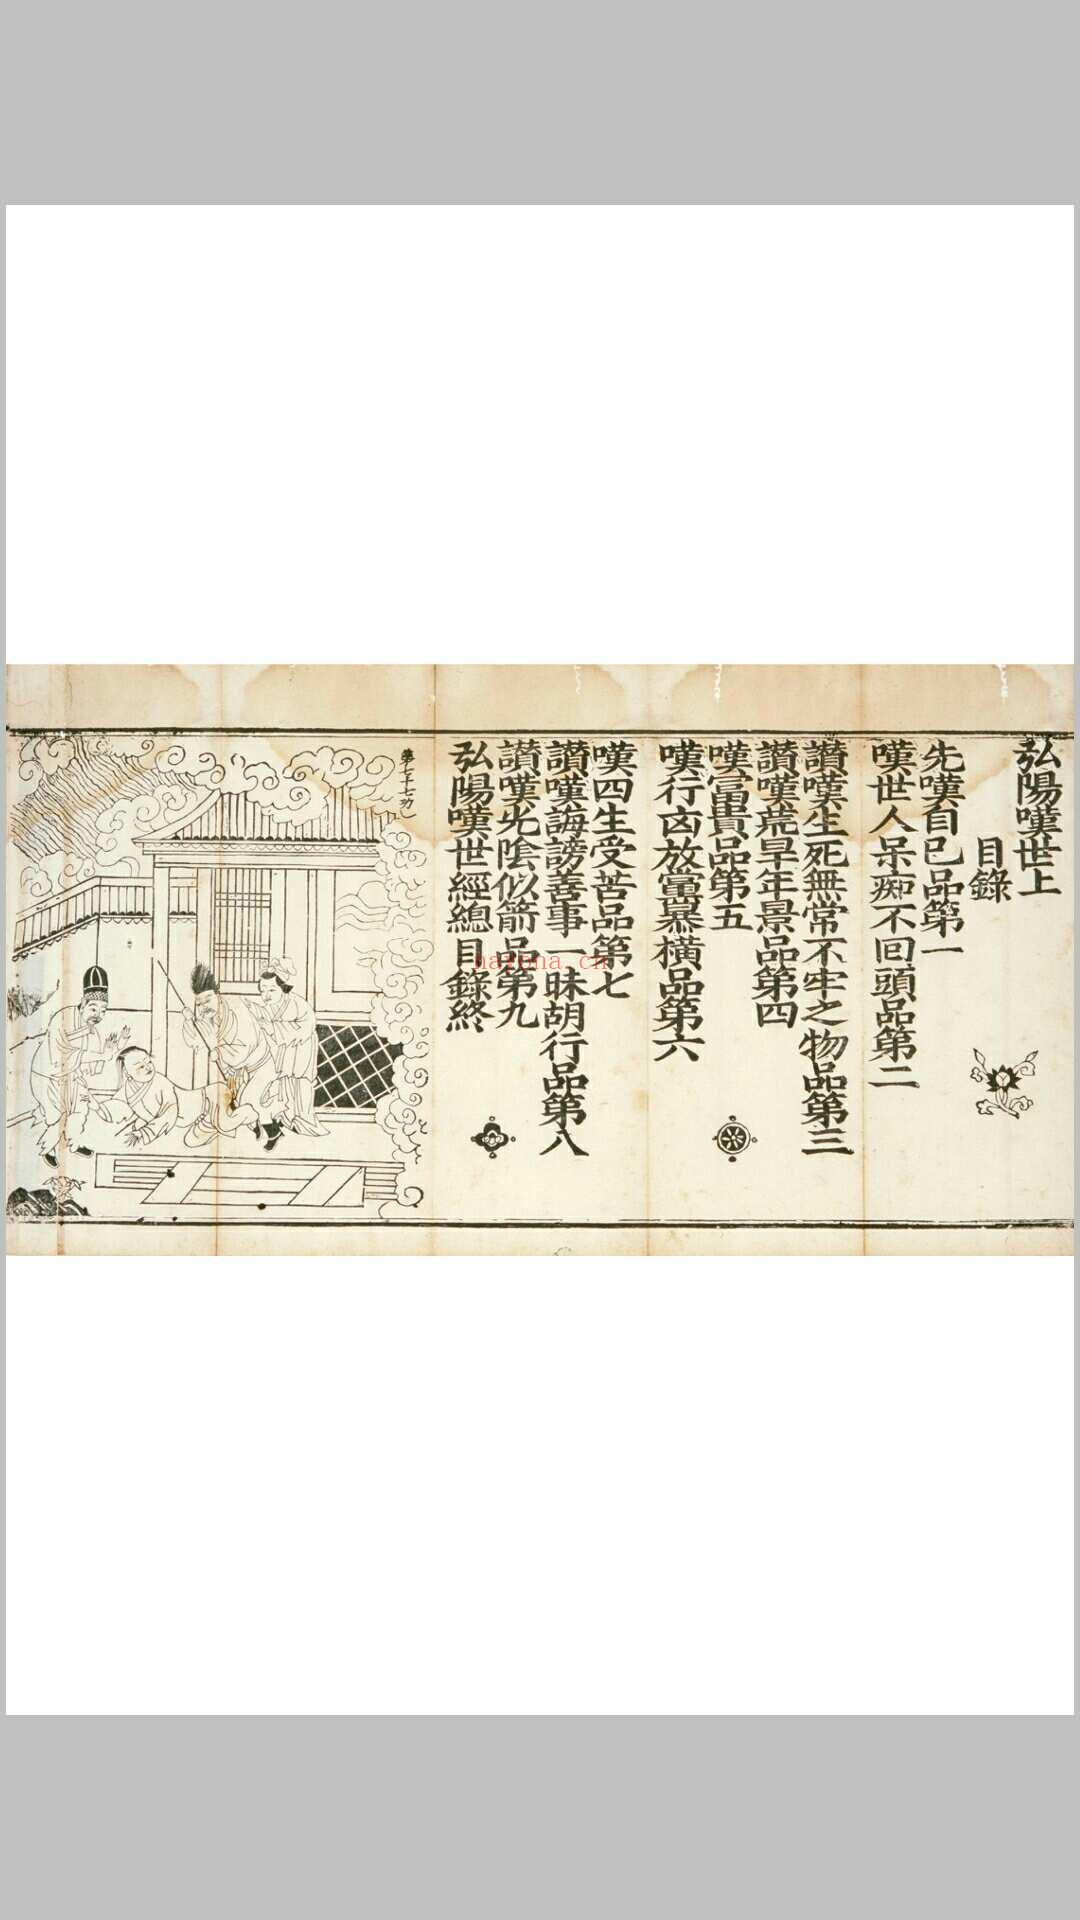 弘陽嘆世上
目錄
先嘆自己品第一
嘆世人呆痴不囘頭品第二
讃嘆生死無常不牢之物品第三
讃嘆荒旱年景品第四
嘆富貴品第五
嘆行凶放黨暴橫品第六
嘆四生受苦品第七
讃嘆誨謗善事一昧胡行品第八
讃嘆光陰似箭品第九
弘陽嘆世經總目錄終
nayona.cn